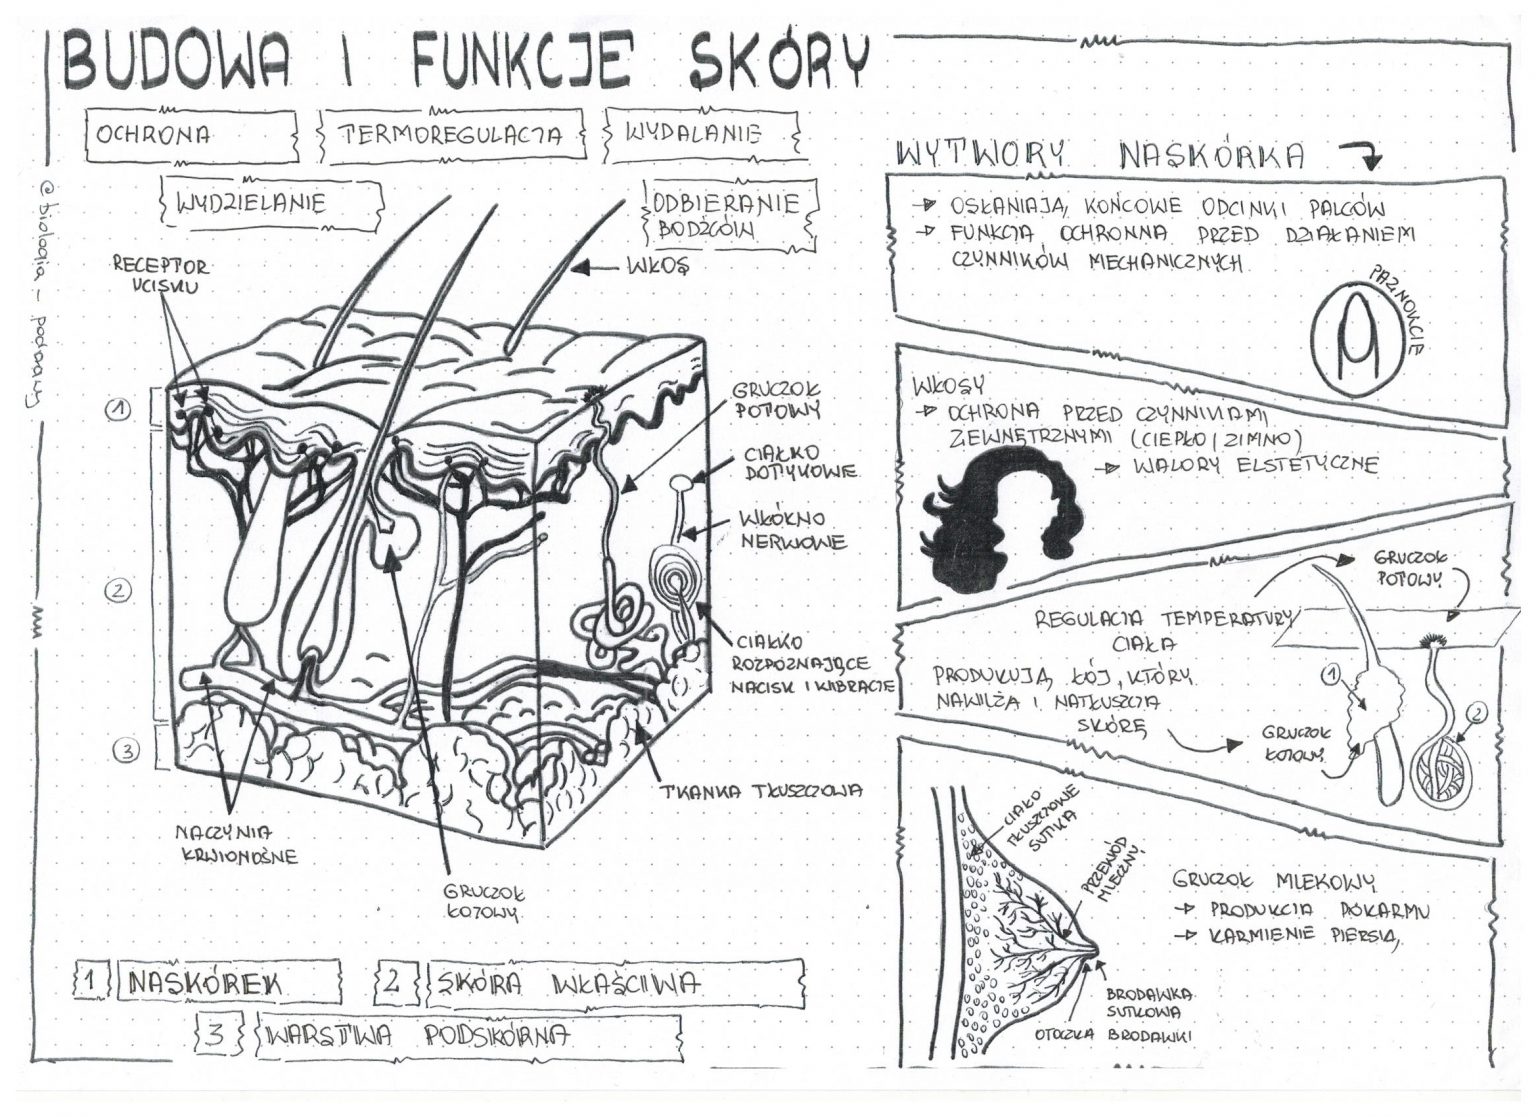 BUDOWA I FUNKCJE SKÓRY
OCHRONA
TERMOREGULACJA
WYDALANIE
WYDZIELANIE
ODBIERANIE
BODŹCÓW
@biologia-podstawy
RECEPTOR
UCISKU
WŁOS
GRUCZOŁ
POTOWY
CIAŁKO
DOTYKOWE
WŁÓKNO
NERWOWE
CIAŁKO
ROZPOZNAJĄCE
NACISK I WIBRACJE
TKANKA TŁUSZCZOWA
NACZYNIA
KRWIONOŚNE
GRUCZOŁ
ŁOJOWY
1
2
3
1 NASKÓREK
2 SKÓRA WŁAŚCIWA
3 WARSTWA PODSKÓRNA
WYTWORY NASKÓRKA
OSŁANIAJĄ KOŃCOWE ODCINKI PALCÓW
FUNKCJA OCHRONNA PRZED DZIAŁANIEM
CZYNNIKÓW MECHANICZNYCH
PAZNOKCIE
WŁOSY
OCHRONA PRZED CZYNNIKAMI
ZEWNĘTRZNYMI (CIEPŁO/ZIMNO)
WALORY ELSTETYCZNE
GRUCZOŁ
POTOWY
REGULACJA TEMPERATURY
CIAŁA
PRODUKUJĄ ŁÓJ, KTÓRY
NAWILŻA I NATŁUSZCZA
SKÓRĘ
GRUCZOŁ
ŁOJOWY
1
2
CIAŁO
TŁUSZCZOWE
SUTKA
PRZEWÓD
MLECZNY
GRUCZOŁ MLEKOWY
PRODUKCJA POKARMU
KARMIENIE PIERSIĄ
BRODAWKA
SUTKOWA
OTOCZKA BRODAWKI